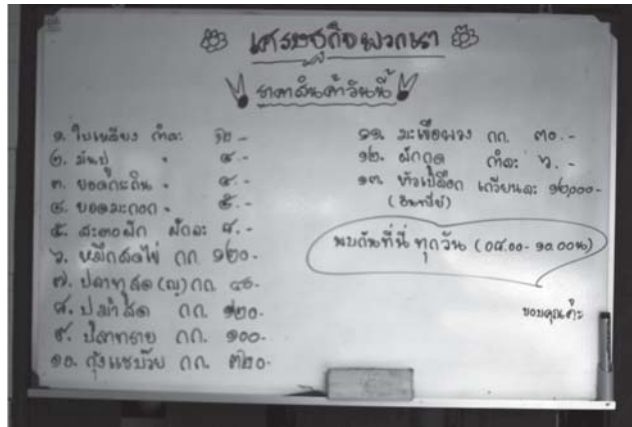 เศรษฐกิจพวกเรา
ราคาสินค้าวันนี้
๑. ใบเหลียง กำละ ๑๒.-
๒. มันปู " ๕.-
๓. ยอดกระถิน " ๕.-
๔. ยอดมะกอก " ๕.-
๕. สะตอฝัก ฝักละ ๔.-
๖. หมึกสดไข่ กก. ๑๒๐.-
๗. ปลาทูสด (ญ) กก.
๘. ปูม้าสด กก. ๑๒๐.-
๙. ปลาทราย กก. ๑๐๐.-
๑๐. กุ้งแชบ๊วย กก. ๓๒๐.-
๑๑. มะเขือพวง กก. ๓๐.-
๑๒. ผักกูด กำละ ๖.-
๑๓. ข้าวเปลือก เกวียนละ ๑๒,๐๐๐.-
(อินทรีย์)
พบกันที่นี่ ทุกวัน (๐๕.๐๐ - ๑๐.๐๐น)
ขอบคุณค่ะ